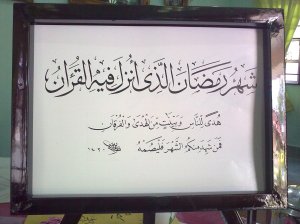 شَهْرُ رَمَضَانَ الَّذِي أُنْزِلَ فِيْهِ الْقُرْاٰنُ
هُدًى لِلنَّاسِ وَبَيِّنٰتٍ مِنَ الْهُدٰى وَالْفُرْقَانِ
فَمَنْ شَهِدَ مِنْكُمُ الشَّهْرَ فَلْيَصُمْهُ